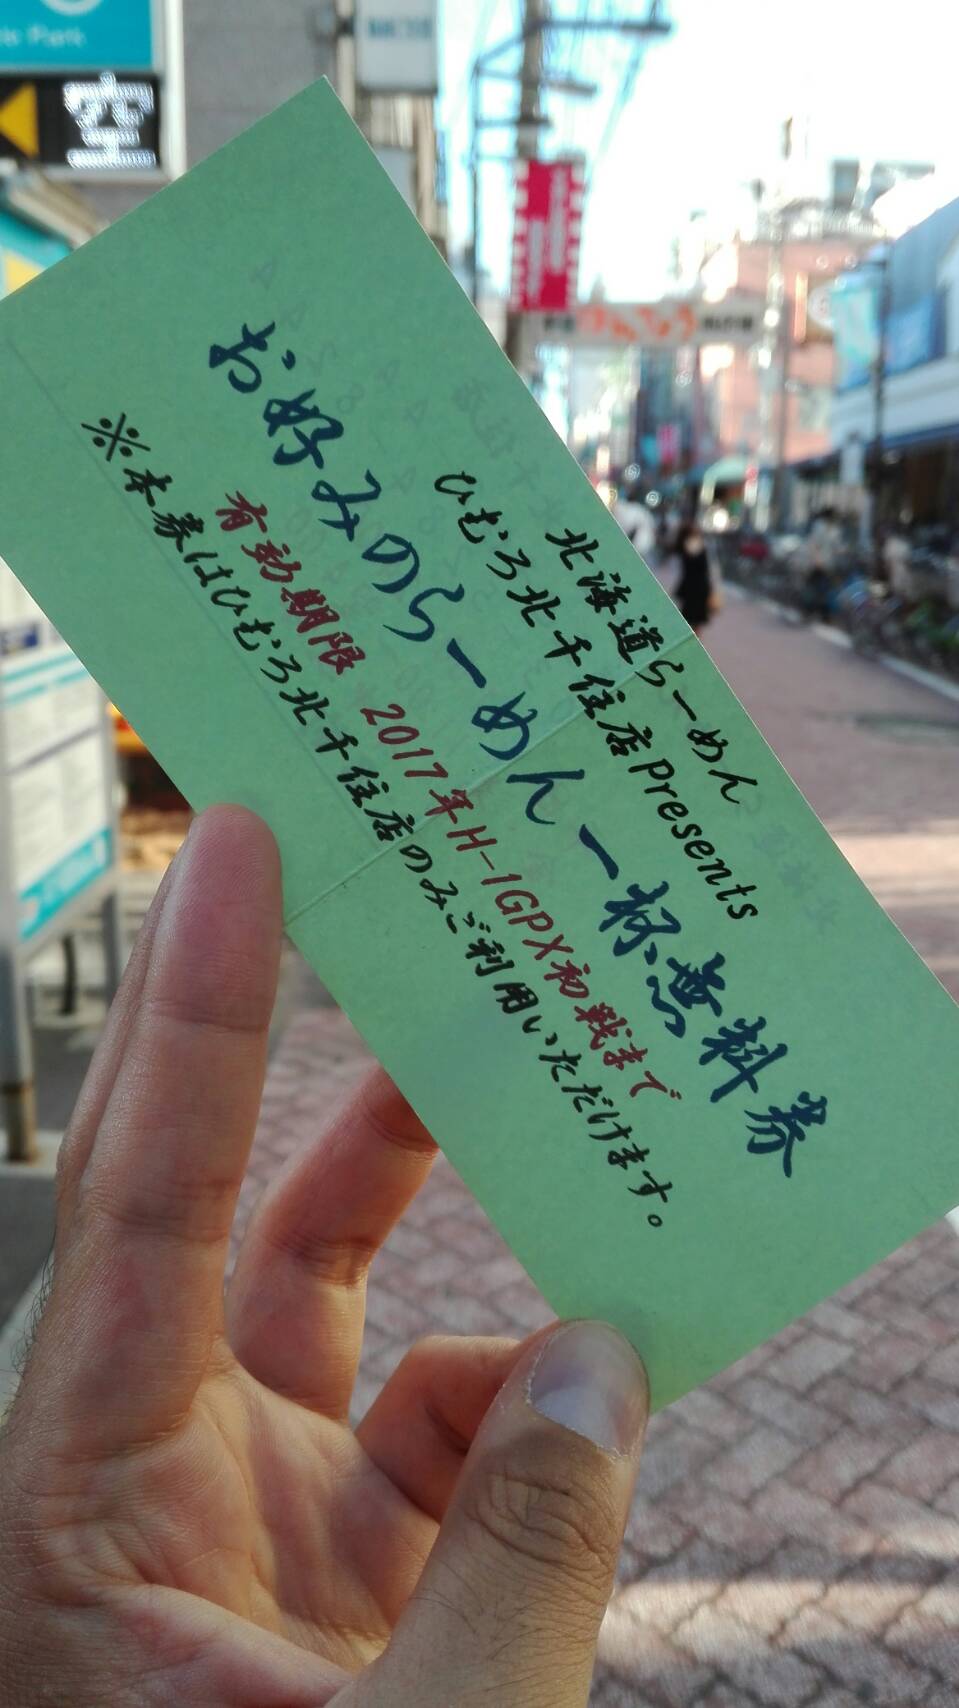 le Park
空
北海道らーめん
ひむろ北千住店Presents
お好みのらーめん一杯無料券
有効期限 2017年H-1GPX初戦まで
※本券はひむろ北千住店のみご利用いただけます。